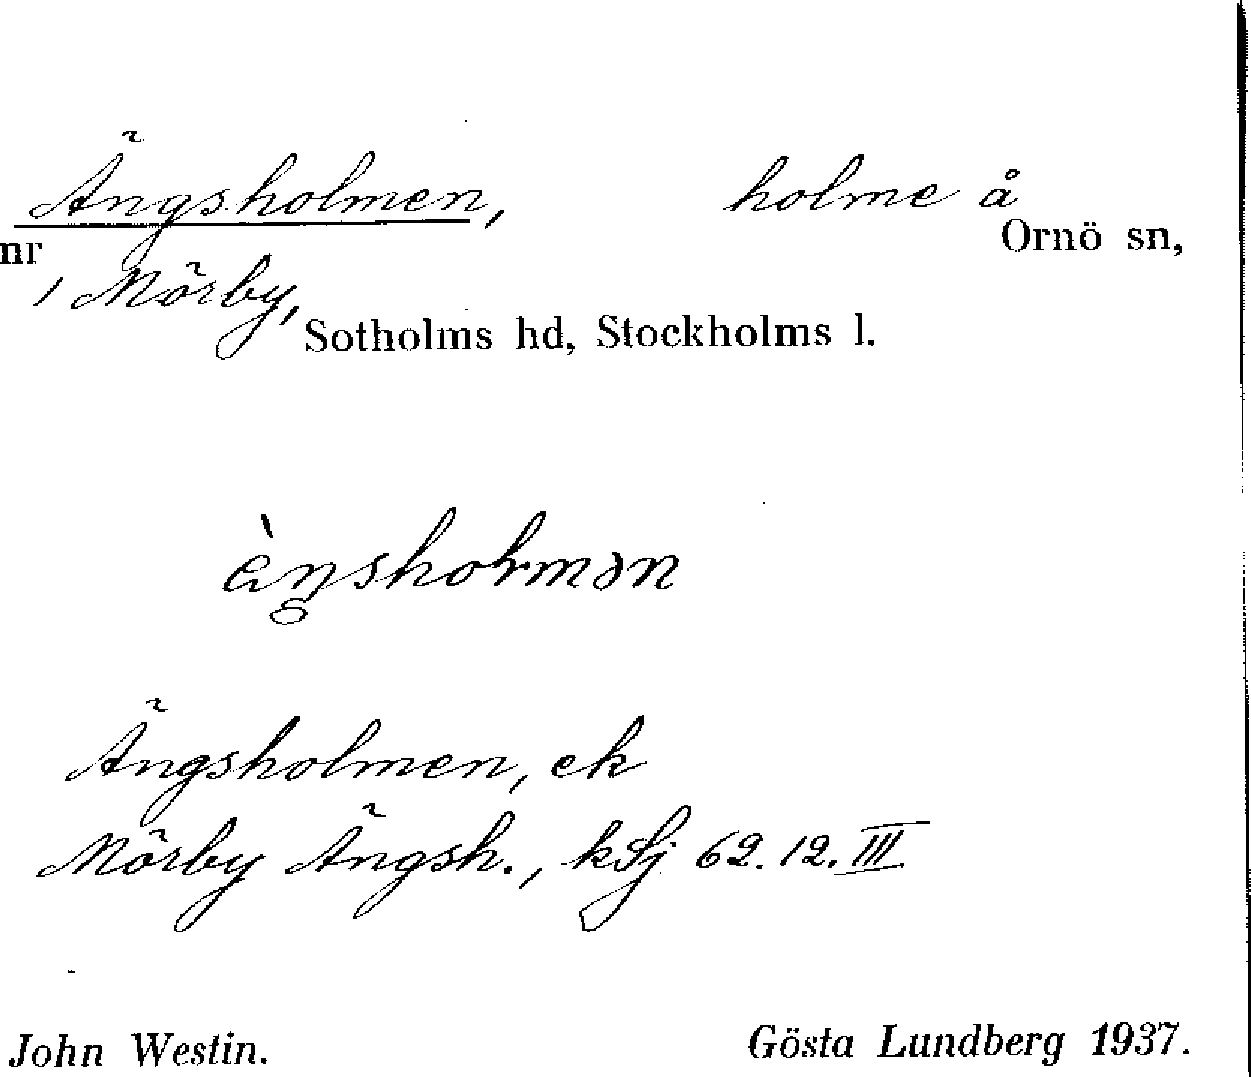 Ängsholmen, holme å
nr Ornö sn,
, Mörby,
Sotholms hd, Stockholms l.
Ängsholmen, ek
Mörby Ängsh., kSj 62.12.III
John Westin. Gösta Lundberg 1937.